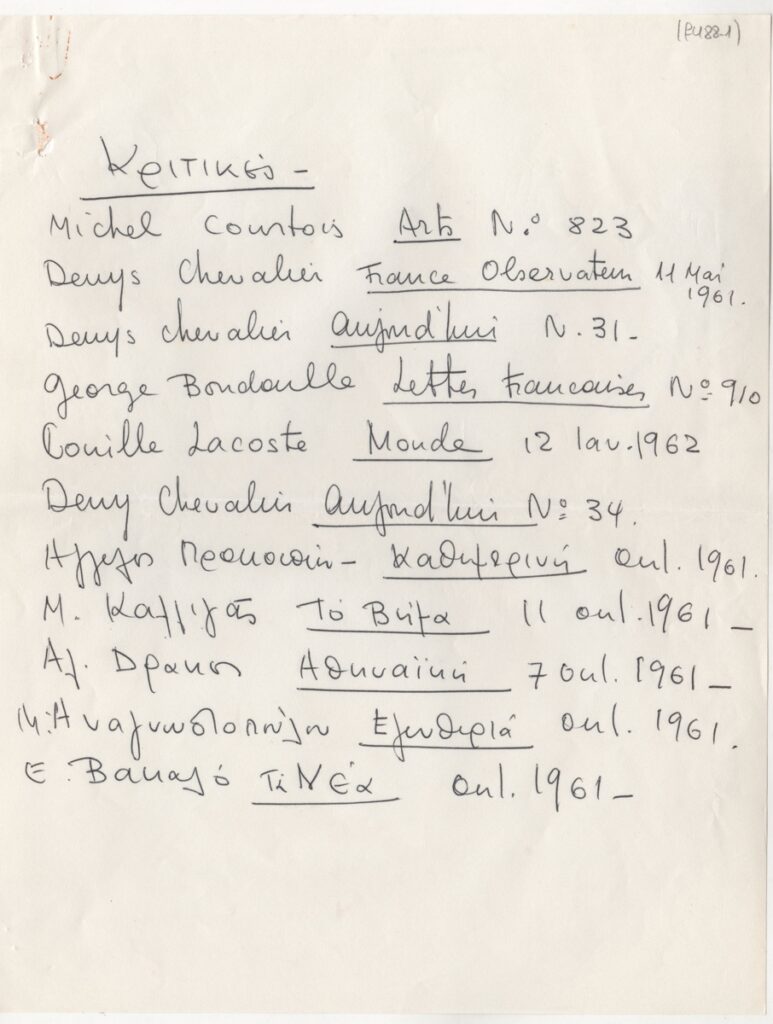 Κριτικές -
Michel Courtois Arts N.° 823
Denys Chevalier France Observateur 11 Mai
1961.
Denys chevalier Aujourd'hui N. 31 -
George Boudaille Lettres Francaises N° 910
Lacoste Monde 12 Iav. 1962
Deny Chevalier Aujourd'hui N° 34.
Αγγελος Προκοπίου - Καθημερινή οκτ. 1961.
Μ. Καλλιγάς Τό Βήμα 11 οκτ. 1961 -
Αλ. Δρακος Αθηναϊκή 7 οκτ. 1961 -
Μ. Αναγνωστοπούλου Ελευθεριά οκτ. 1961.
Ε. Βακαλό Τά Νέα οκτ. 1961 -